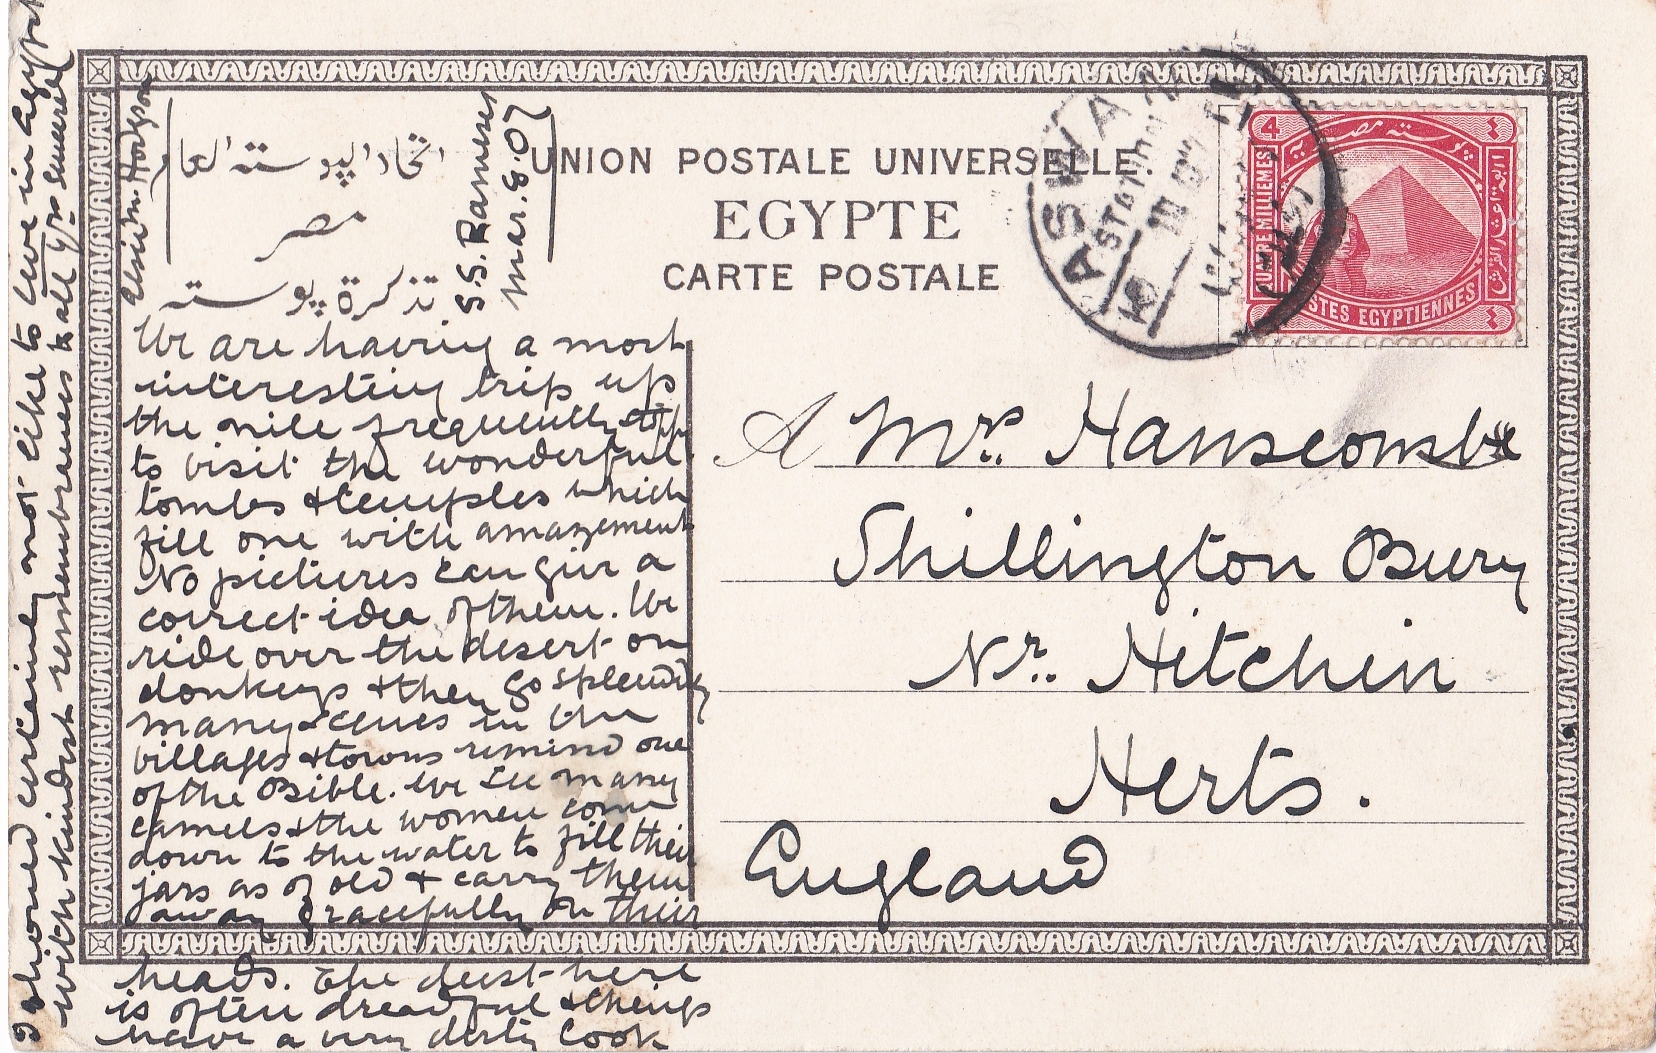 اتحاد البوسته العام
مصر
تذكرة بوسته
UNION POSTALE UNIVERSELLE.
EGYPTE
CARTE POSTALE
S.S. Rameses
Mar. 8. 07
We are having a most
interesting trip up
the nile frequently stopp
to visit the wonderful
tombs & temples which
fill one with amazement
No pictures can give a
correct idea of them. We
ride over the desert on
donkeys & they go splendidly
many scenes in the
villages & towns remind one
of the Bible. We see many
camels & the women come
down to the water to fill their
jars as of old & carry them
away gracefully on their
heads. The dust here
is often dreadful & things
have a very dirty look
I should certainly not like to live in Egypt
with kindest remembrances to all yrs sincerely
Elsie M. Hodgson
ASWA
4
بوسته مصريه
QUATRE MILLIEMES
POSTES EGYPTIENNES
٤
A Mrs. Hanscombe
Shillington Bury
Nr. Hitchin
Herts.
England